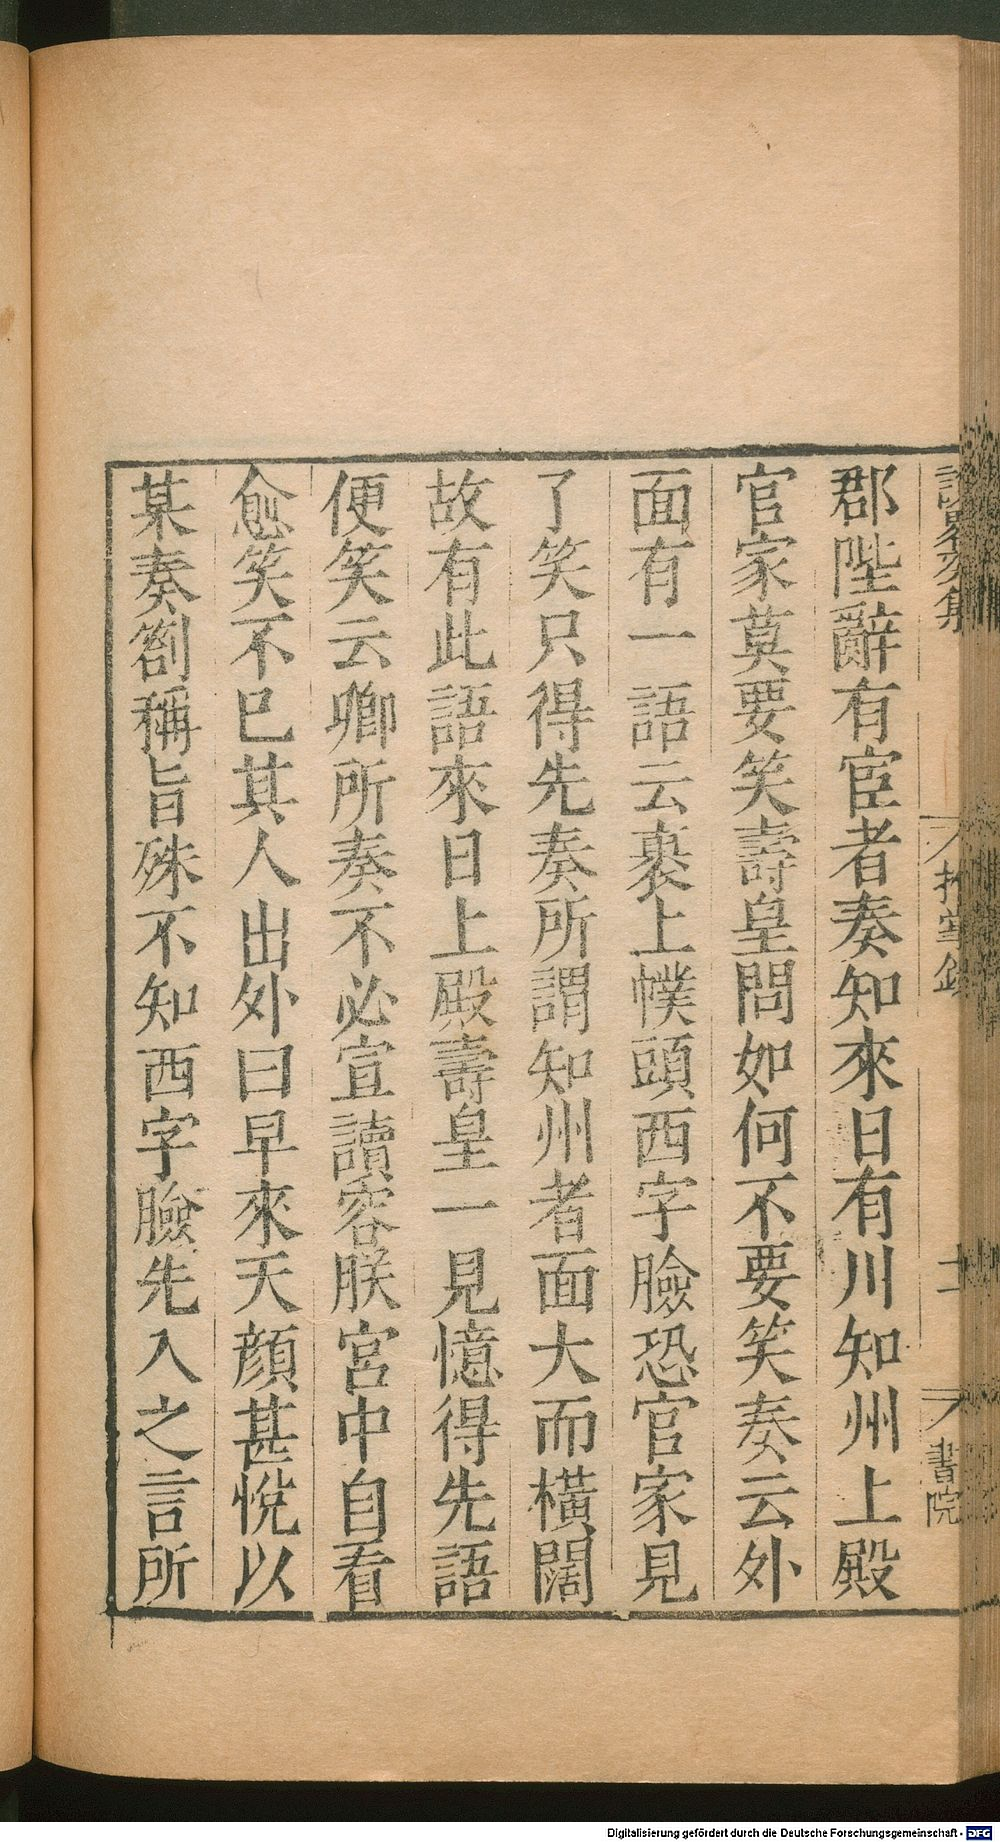 郡陛辭有宦者奏知來日有川知州上殿
官家莫要笑壽皇問如何不要笑奏云外
面有一語云裹上幞頭西字臉恐官家見
了笑只得先奏所謂知州者面大而橫闊
故有此語來日上殿壽皇一見憶得先語
便笑云卿所奏不必宣讀容朕宮中自看
愈笑不已其人出外曰早來天顏甚悅以
某奏劄稱旨殊不知西字臉先入之言所
書院
Digitalisierung gefördert durch die Deutsche Forschungsgemeinschaft - DFG